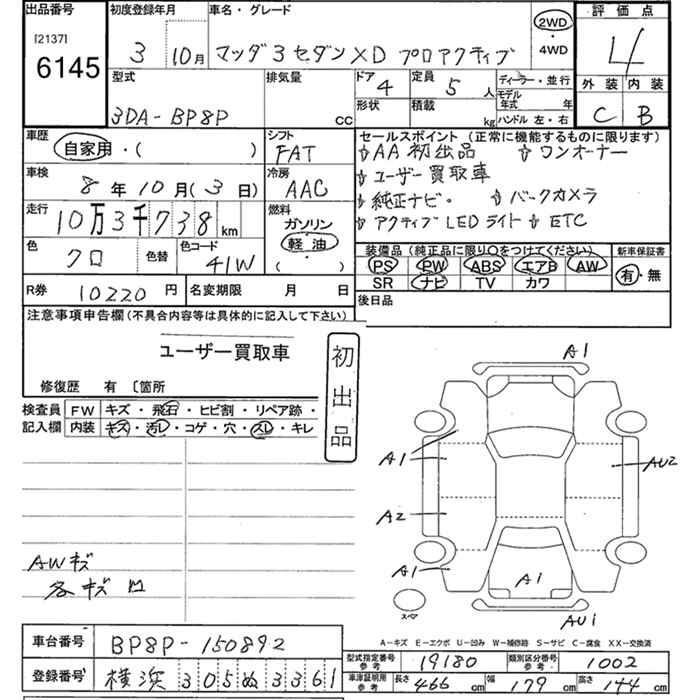 出品番号 初度登録年月 車名・グレード 2WD 評価点
[2137] 6145 3 10月 マツダ3セダンXD プロアクティブ ・4WD 4
型式 排気量 ドア 定員 ディーラー・並行 外装 内装
3DA-BP8P cc 4 5人 モデル年式 年 C B
形状 積載 kg ハンドル 左・右
車歴 シフト セールスポイント(正常に機能するものに限ります)
自家用・( ) FAT ☆AA初出品 ☆ワンオーナー
車検 冷房 ☆ユーザー買取車
8年10月(3日) AAC ☆純正ナビ・ ☆バックカメラ
走行 燃料 ☆アクティブLEDライト☆ETC
10万3千738km ガソリン
色 色替 色コード 軽油 装備品(純正品に限り○をつけてください) 新車保証書
クロ 41W ( ) PS PW ABS エアB AW 有・無
SR ナビ TV カワ
R券 10220円 名変期限 月 日 後日品
注意事項申告欄(不具合内容等は具体的に記入して下さい)
ユーザー買取車 初出品
修復歴 有 〔箇所
検査員 FW キズ・飛石・ヒビ割・リペア跡・
記入欄 内装 キズ・汚レ・コゲ・穴・スレ・キレ
A1
A1 AU2
A2
A1 A1
スペア AU1
AWキズ
各キズ凹
A-キズ E-エクボ U-凹み W-補修跡 S-サビ C-腐食 XX-交換済
車台番号 BP8P-150892
型式指定番号参考 19180 類別区分番号参考 1002
登録番号 横浜 305ぬ3361
車庫証明用参考 長さ 466cm 幅 179cm 高さ 144cm